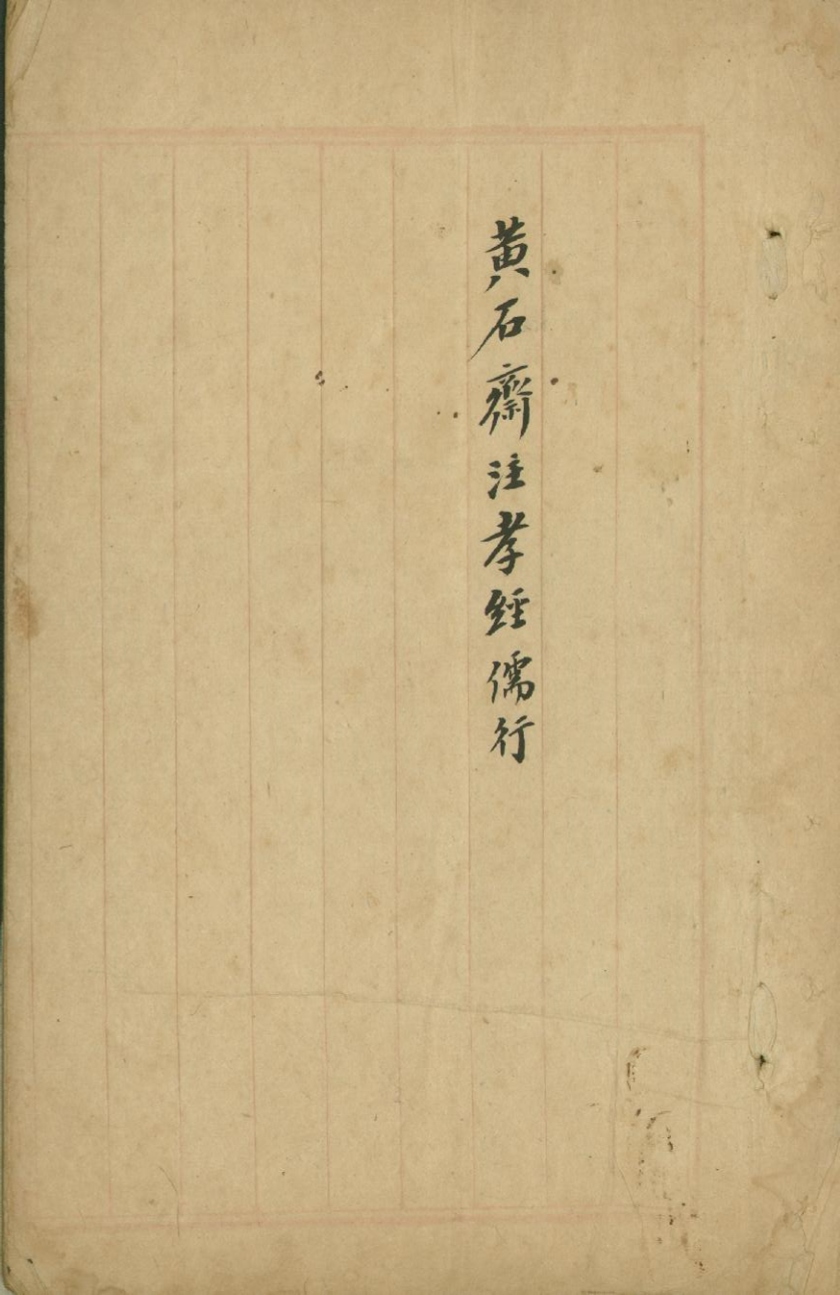 黃石齋注孝經儒行